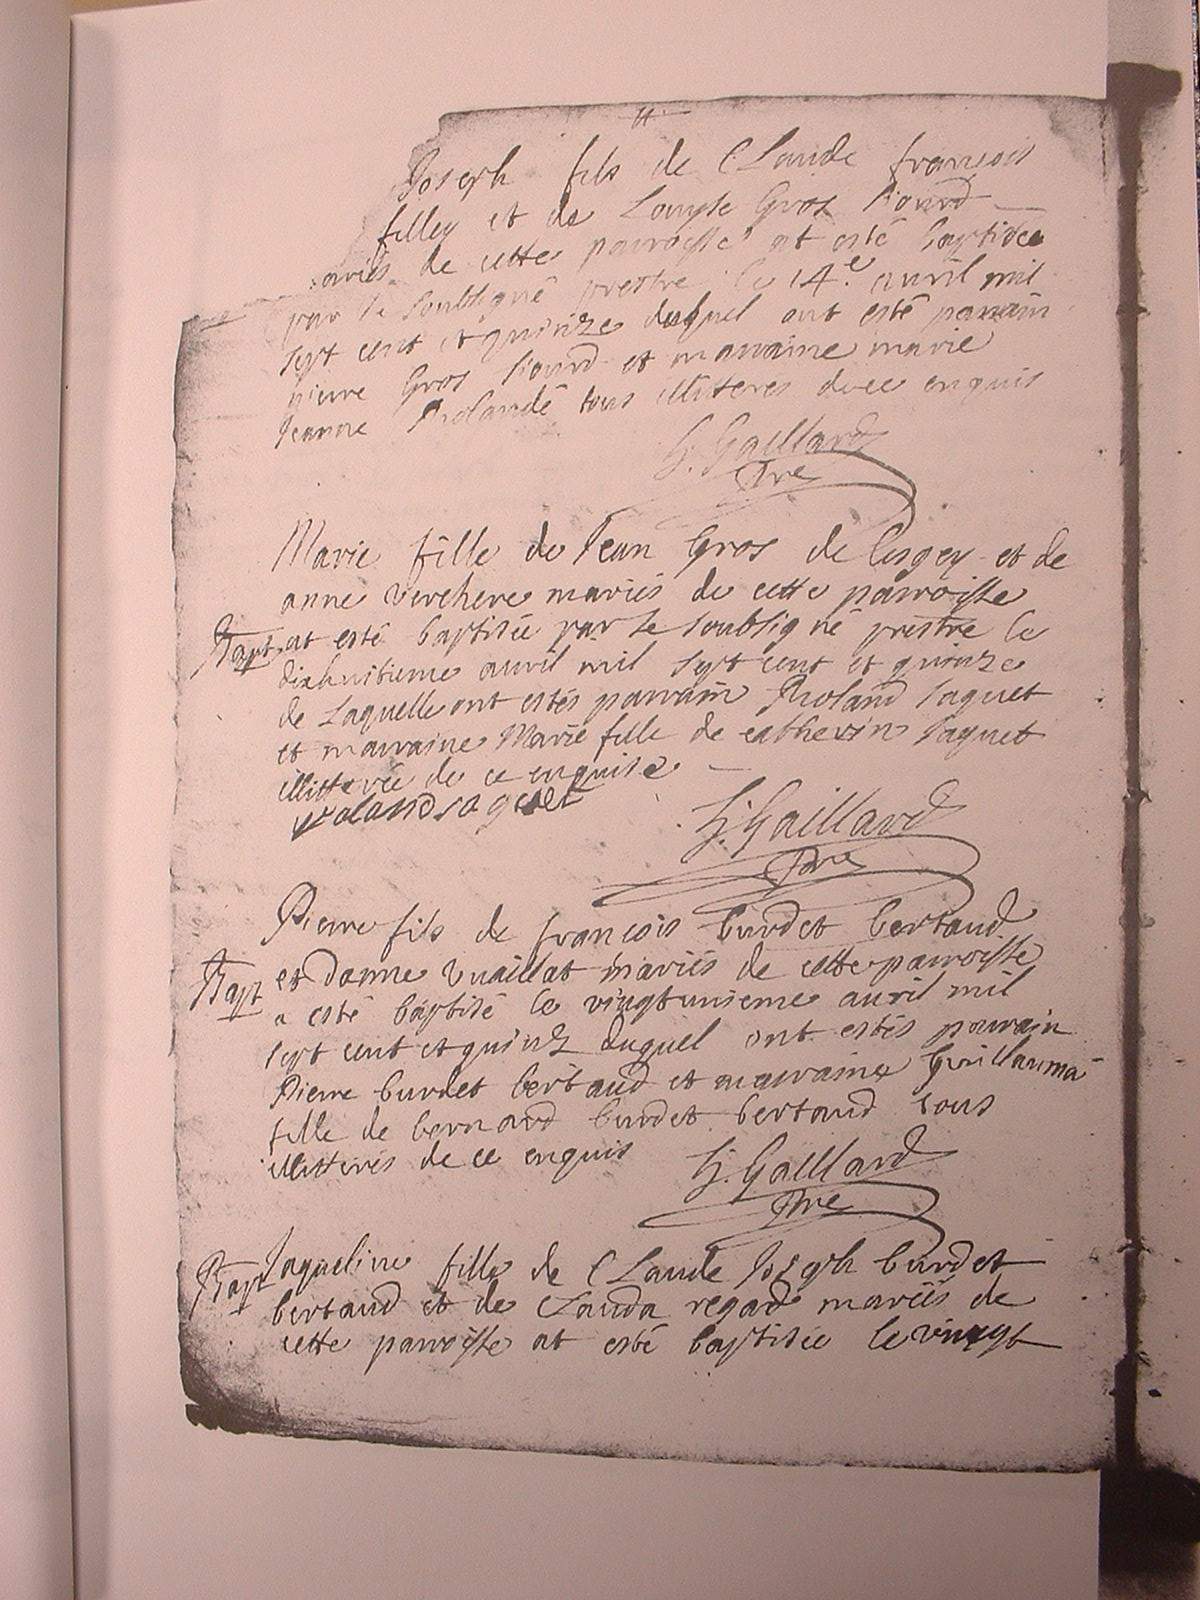 Joseph fils de Claude françois
filley et de Louyse Gros piard
mariés de cette parroisse at esté baptisée
par le soubsigné prestre le 14.e avril mil
sept cent et quinze duquel ont esté parrain
pierre Gros piard et marraine marie
Jeanne Rolande tous illiteres de ce enquis
G. Gaillard
Pre
Marie fille de Jean Gros de et de
anne verchere mariés de cette parroisse
Bapt at esté baptisée par le soubsigné prestre le
dixhuitieme avril mil sept cent et quinze
de laquelle ont estés parrain Roland Jaquet
et marraine Marie fille de catherin Jaquet
illitterée de ce enquise
roland jaquet
G. Gaillard
Pre
Pierre fils de françois burdet bertaud
Bapt et danne vuaillat mariés de cette parroisse
a esté baptisé le vingtunieme avril mil
sept cent et quinz duquel ont estés parrain
Pierre burdet bertaud et marraine Guillauma
fille de bernard burdet bertaud tous
illitterés de ce enquis
G. Gaillard
Pre
Bapt Jaqueline fille de Claude Joseph burdet
bertaud et de Clauda regad mariés de
cette parroisse at esté baptisée le vingt